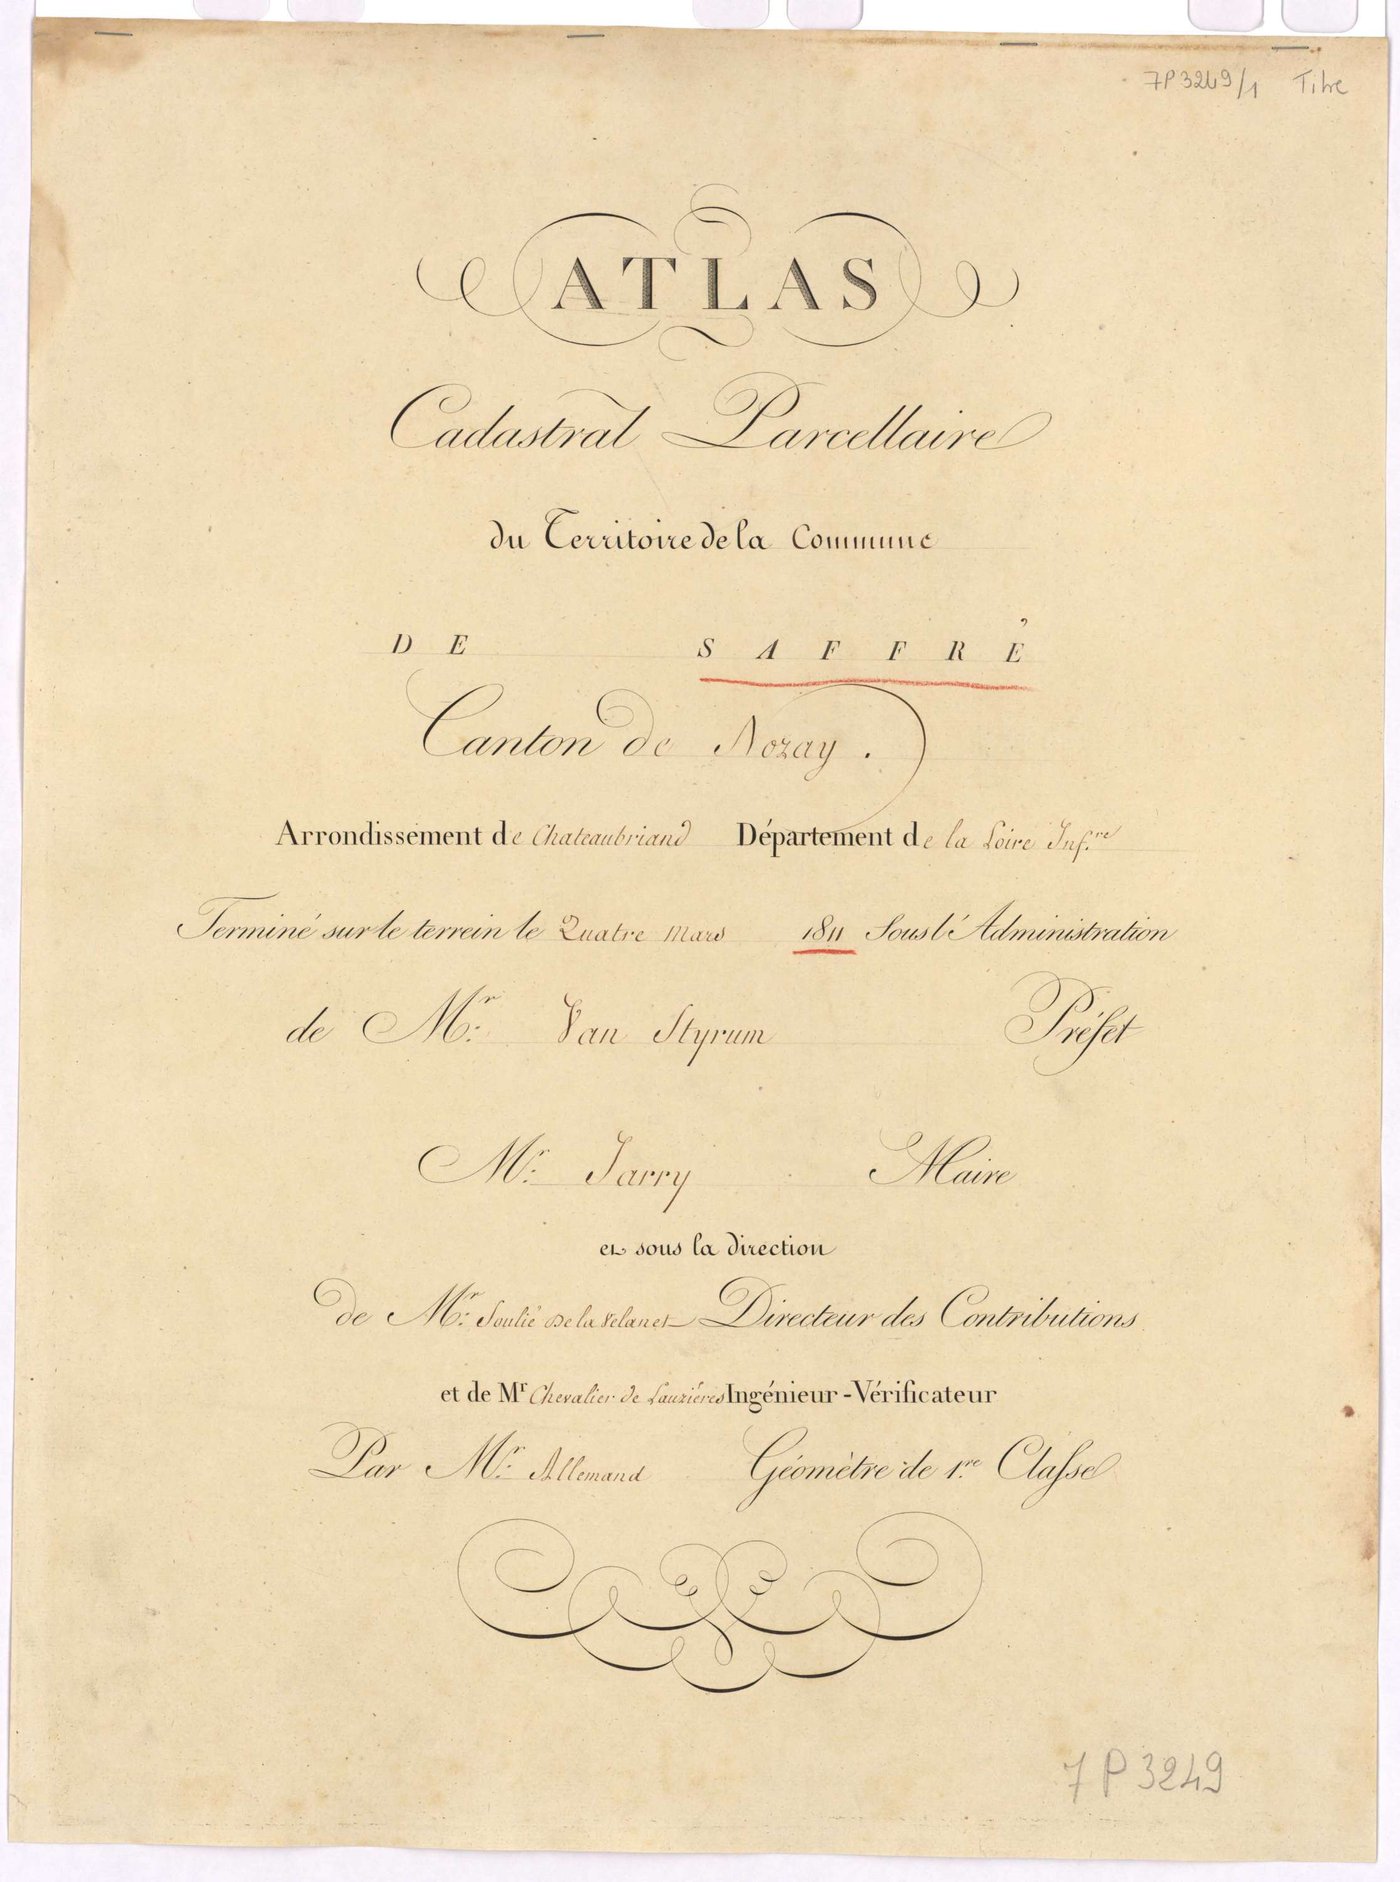 7P3249/1 Titre
ATLAS
Cadastral Parcellaire
du Territoire de la Commune
DE SAFFRÉ
Canton de Nozay.
Arrondissement de Chateaubriand Département de la Loire Inf.re
Terminé sur le terrein le Quatre Mars 1811 Sous l'Administration
de Mr. Van Styrum Préfet
Mr. Jarry Maire
et sous la direction
de Mr. Soulié De la Velanet Directeur des Contributions
et de Mr Chevalier de Lauzières Ingénieur-Vérificateur
Par Mr. Allemand Géomètre de 1.re Classe
7P3249